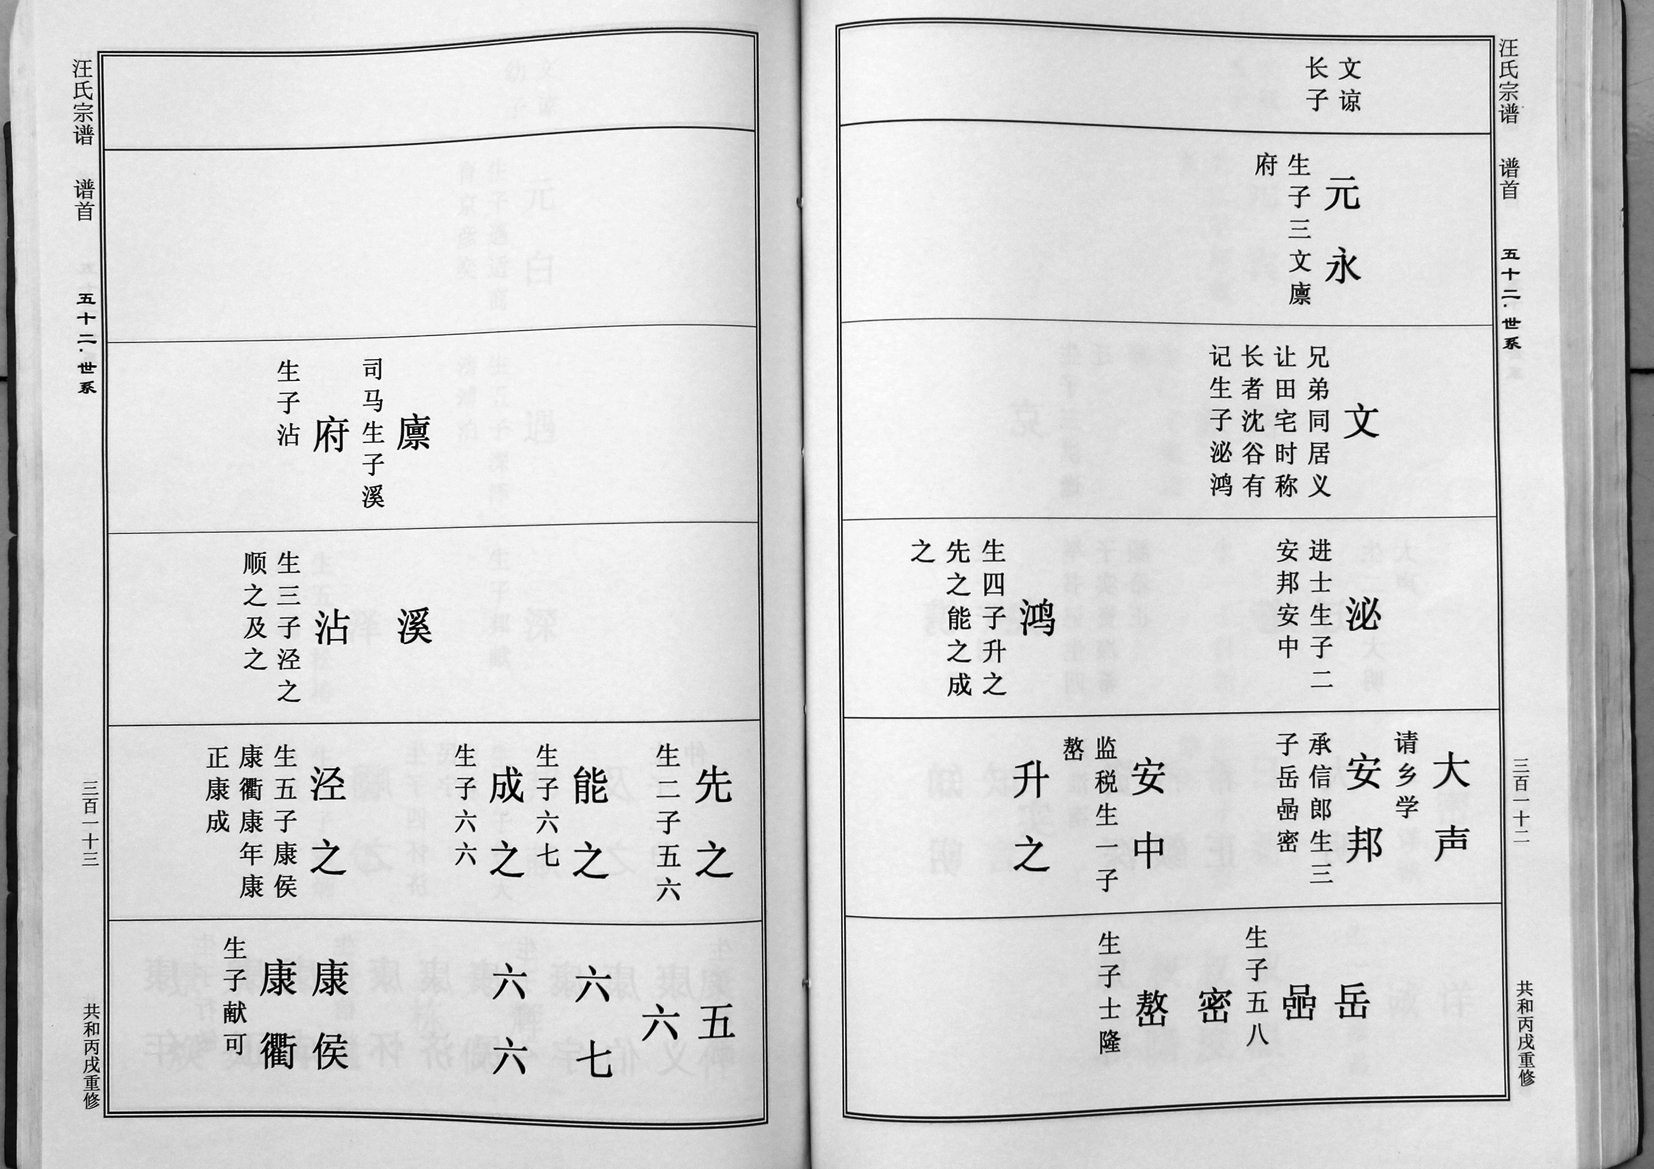 汪氏宗谱 谱首 五十二·世系 三百一十二 共和丙戌重修
文谅
长子
元永
生子三文廪
府
文
兄弟同居义
让田宅时称
长者沈谷有
记生子泌鸿
泌
进士生子二
安邦安中
鸿
生四子升之
先之能之成
之
大声
请乡学
安邦
承信郎生三
子岳喦密
安中
监税生一子
嶅
升之
岳
喦
生子五八
密
嶅
生子士隆
廪
司马生子溪
府
生子沾
溪
沾
生三子泾之
顺之及之
先之
生二子五六
能之
生子六七
成之
生子六六
泾之
生五子康侯
康衢康年康
正康成
五
六
六七
六六
康侯
康衢
生子献可
汪氏宗谱 谱首 五十二·世系 三百一十三 共和丙戌重修